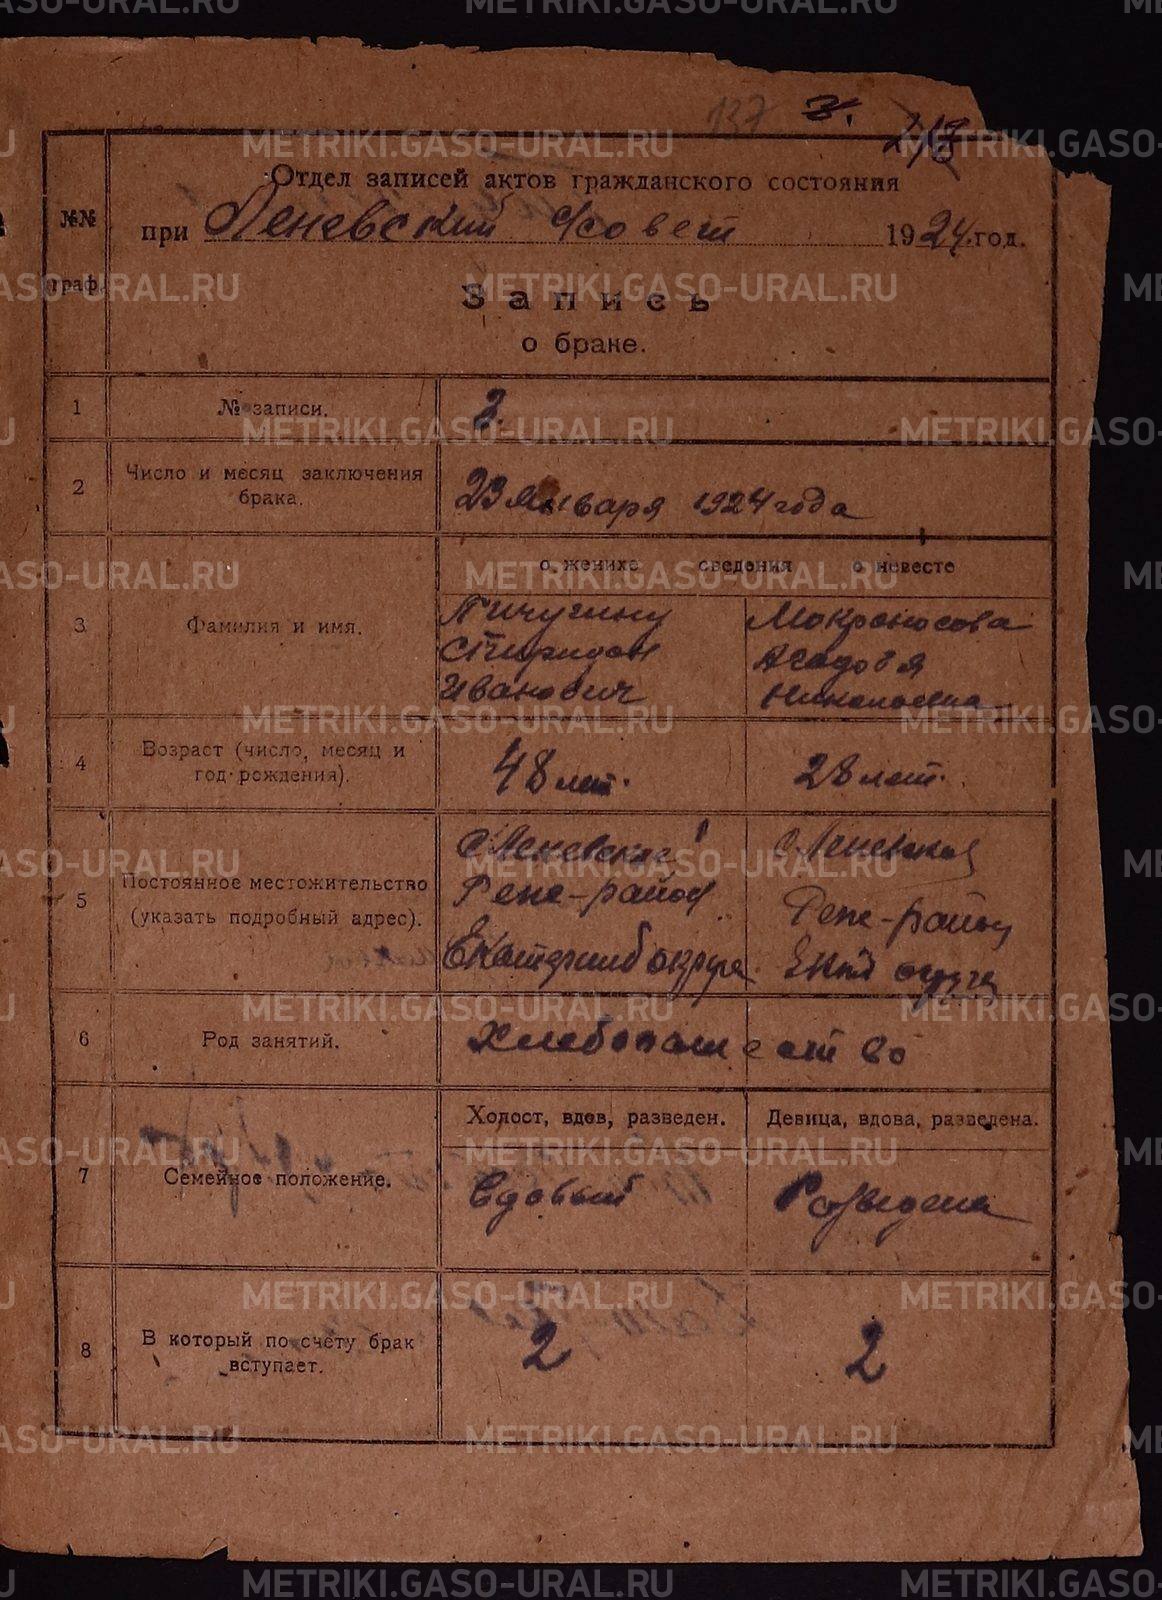 137 3.
Отдел записей актов гражданского состояния
№№ граф.
при Леневский с/совет 1924 год.
Запись
о браке.
1 № записи. 2.
2 Число и месяц заключения брака. 23 января 1924 года
о женихе сведения о невесте
3 Фамилия и имя.
Пичугину Мокроносова
Спиридон Агадовья
Иванович Николаевна
4 Возраст (число, месяц и год рождения). 48 лет. 28 лет.
5 Постоянное местожительство (указать подробный адрес).
С Леневское С Леневское
Реже-район Реже-район
Екатеринб округа округа
6 Род занятий. Хлебопашество
Холост, вдов, разведен. Девица, вдова, разведена.
7 Семейное положение. вдовый Разведена
8 В который по счету брак вступает. 2 2
METRIKI.GASO-URAL.RU